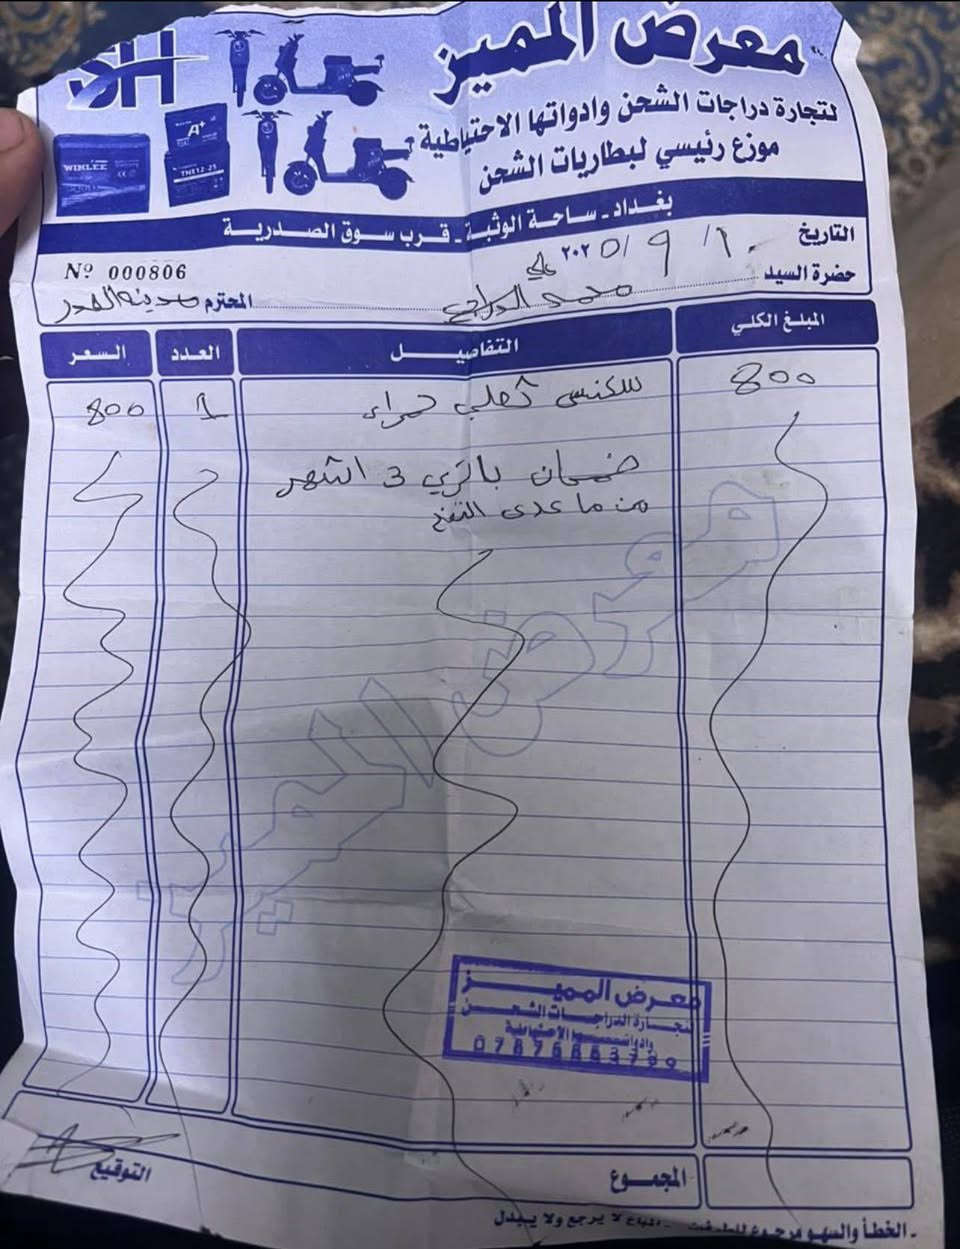 معرض المميز
SH
لتجارة دراجات الشحن وادواتها الاحتياطية
موزع رئيسي لبطاريات الشحن
A+
WINLEE
TNE12-25
بغداد - ساحة الوثبة - قرب سوق الصدرية
التاريخ ١٠ / ٩ / ٢٠٢٥
Nº 000806
حضرة السيد محمد الدراجي علي المحترم مدينة الصدر
المبلغ الكلي التفاصيل العدد السعر
800 سكنس ثعلبي حمراء 1 800
ضمان باتري 3 اشهر
من ماعدى النفخ
معرض المميز
معرض المميز
لتجارة الدراجات الشحن
وادواتها الاحتياطية
المجموع
التوقيع
- الخطأ والسهو مرجوع للطرفين - المباع لا يرجع ولا يبدل